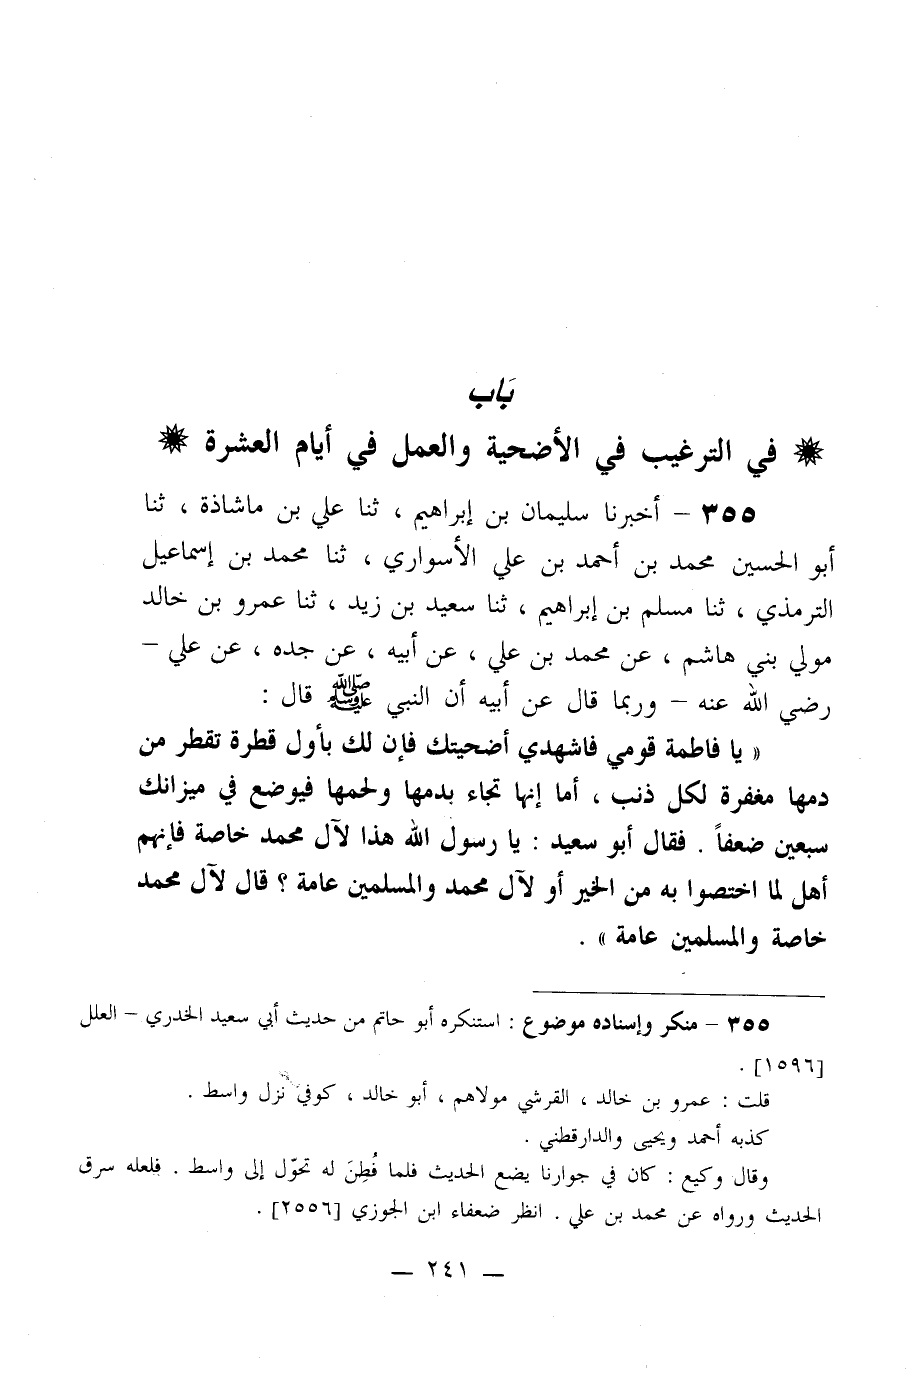 بَاب
في الترغيب في الأضحية والعمل في أيام العشرة
٣٥٥ – أخبرنا سليمان بن إبراهيم ، ثنا علي بن ماشاذة ، ثنا
أبو الحسين محمد بن أحمد بن علي الأسواري ، ثنا محمد بن إسماعيل
الترمذي ، ثنا مسلم بن إبراهيم ، ثنا سعيد بن زيد ، ثنا عمرو بن خالد
مولي بني هاشم ، عن محمد بن علي ، عن أبيه ، عن جده ، عن علي –
رضي الله عنه – وربما قال عن أبيه أن النبي ﷺ قال :
« يا فاطمة قومي فاشهدي أضحيتك فإن لك بأول قطرة تقطر من
دمها مغفرة لكل ذنب ، أما إنها تجاء بدمها ولحمها فيوضع في ميزانك
سبعين ضعفاً . فقال أبو سعيد : يا رسول الله هذا لآل محمد خاصة فإنهم
أهل لما اختصوا به من الخير أو لآل محمد والمسلمين عامة ؟ قال لآل محمد
خاصة والمسلمين عامة » .
٣٥٥ – منكر وإسناده موضوع : استنكره أبو حاتم من حديث أبي سعيد الخدري – العلل
[١٥٩٦] .
قلت : عمرو بن خالد ، القرشي مولاهم ، أبو خالد ، كوفي نزل واسط .
كذبه أحمد ويحيى والدارقطني .
وقال وكيع : كان في جوارنا يضع الحديث فلما فُطِنَ له تحوّل إلى واسط . فلعله سرق
الحديث ورواه عن محمد بن علي . انظر ضعفاء ابن الجوزي [٢٥٥٦] .
— ٢٤١ —